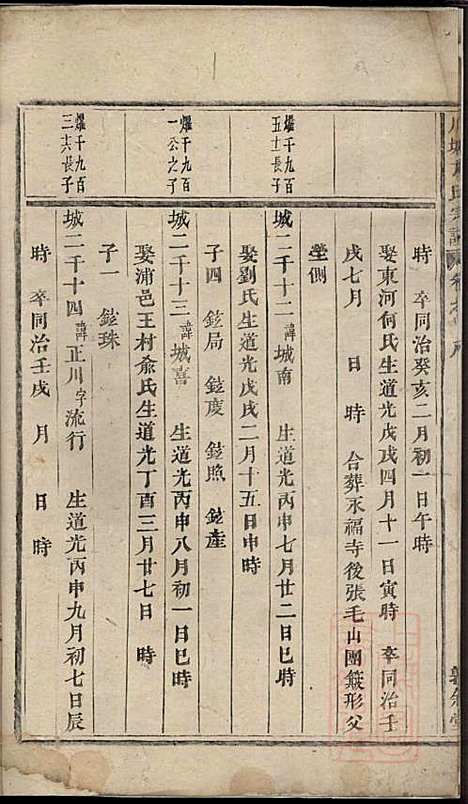 時　卒同治癸亥二月初一日午時
娶東河何氏生道光戊戌四月十一日寅時　卒同治壬
戌七月　日　時　合葬永福寺後張毛山團簸形父
塋側
燿千九百
五士長子
城二千十二諱城南　生道光丙申七月廿二日巳時
娶劉氏生道光戊戌二月十五日申時
子四　鉉局　鉉慶　鉉照　鉉產
燿千九百
一公之子
城二千十三諱城喜　生道光丙申八月初一日巳時
娶浦邑王村俞氏生道光丁酉三月廿七日　時
子一　鉉珠
燿千九百
三共長子
城二千十四諱正川字流行　生道光丙申九月初七日辰
時　卒同治壬戌　月　日　時